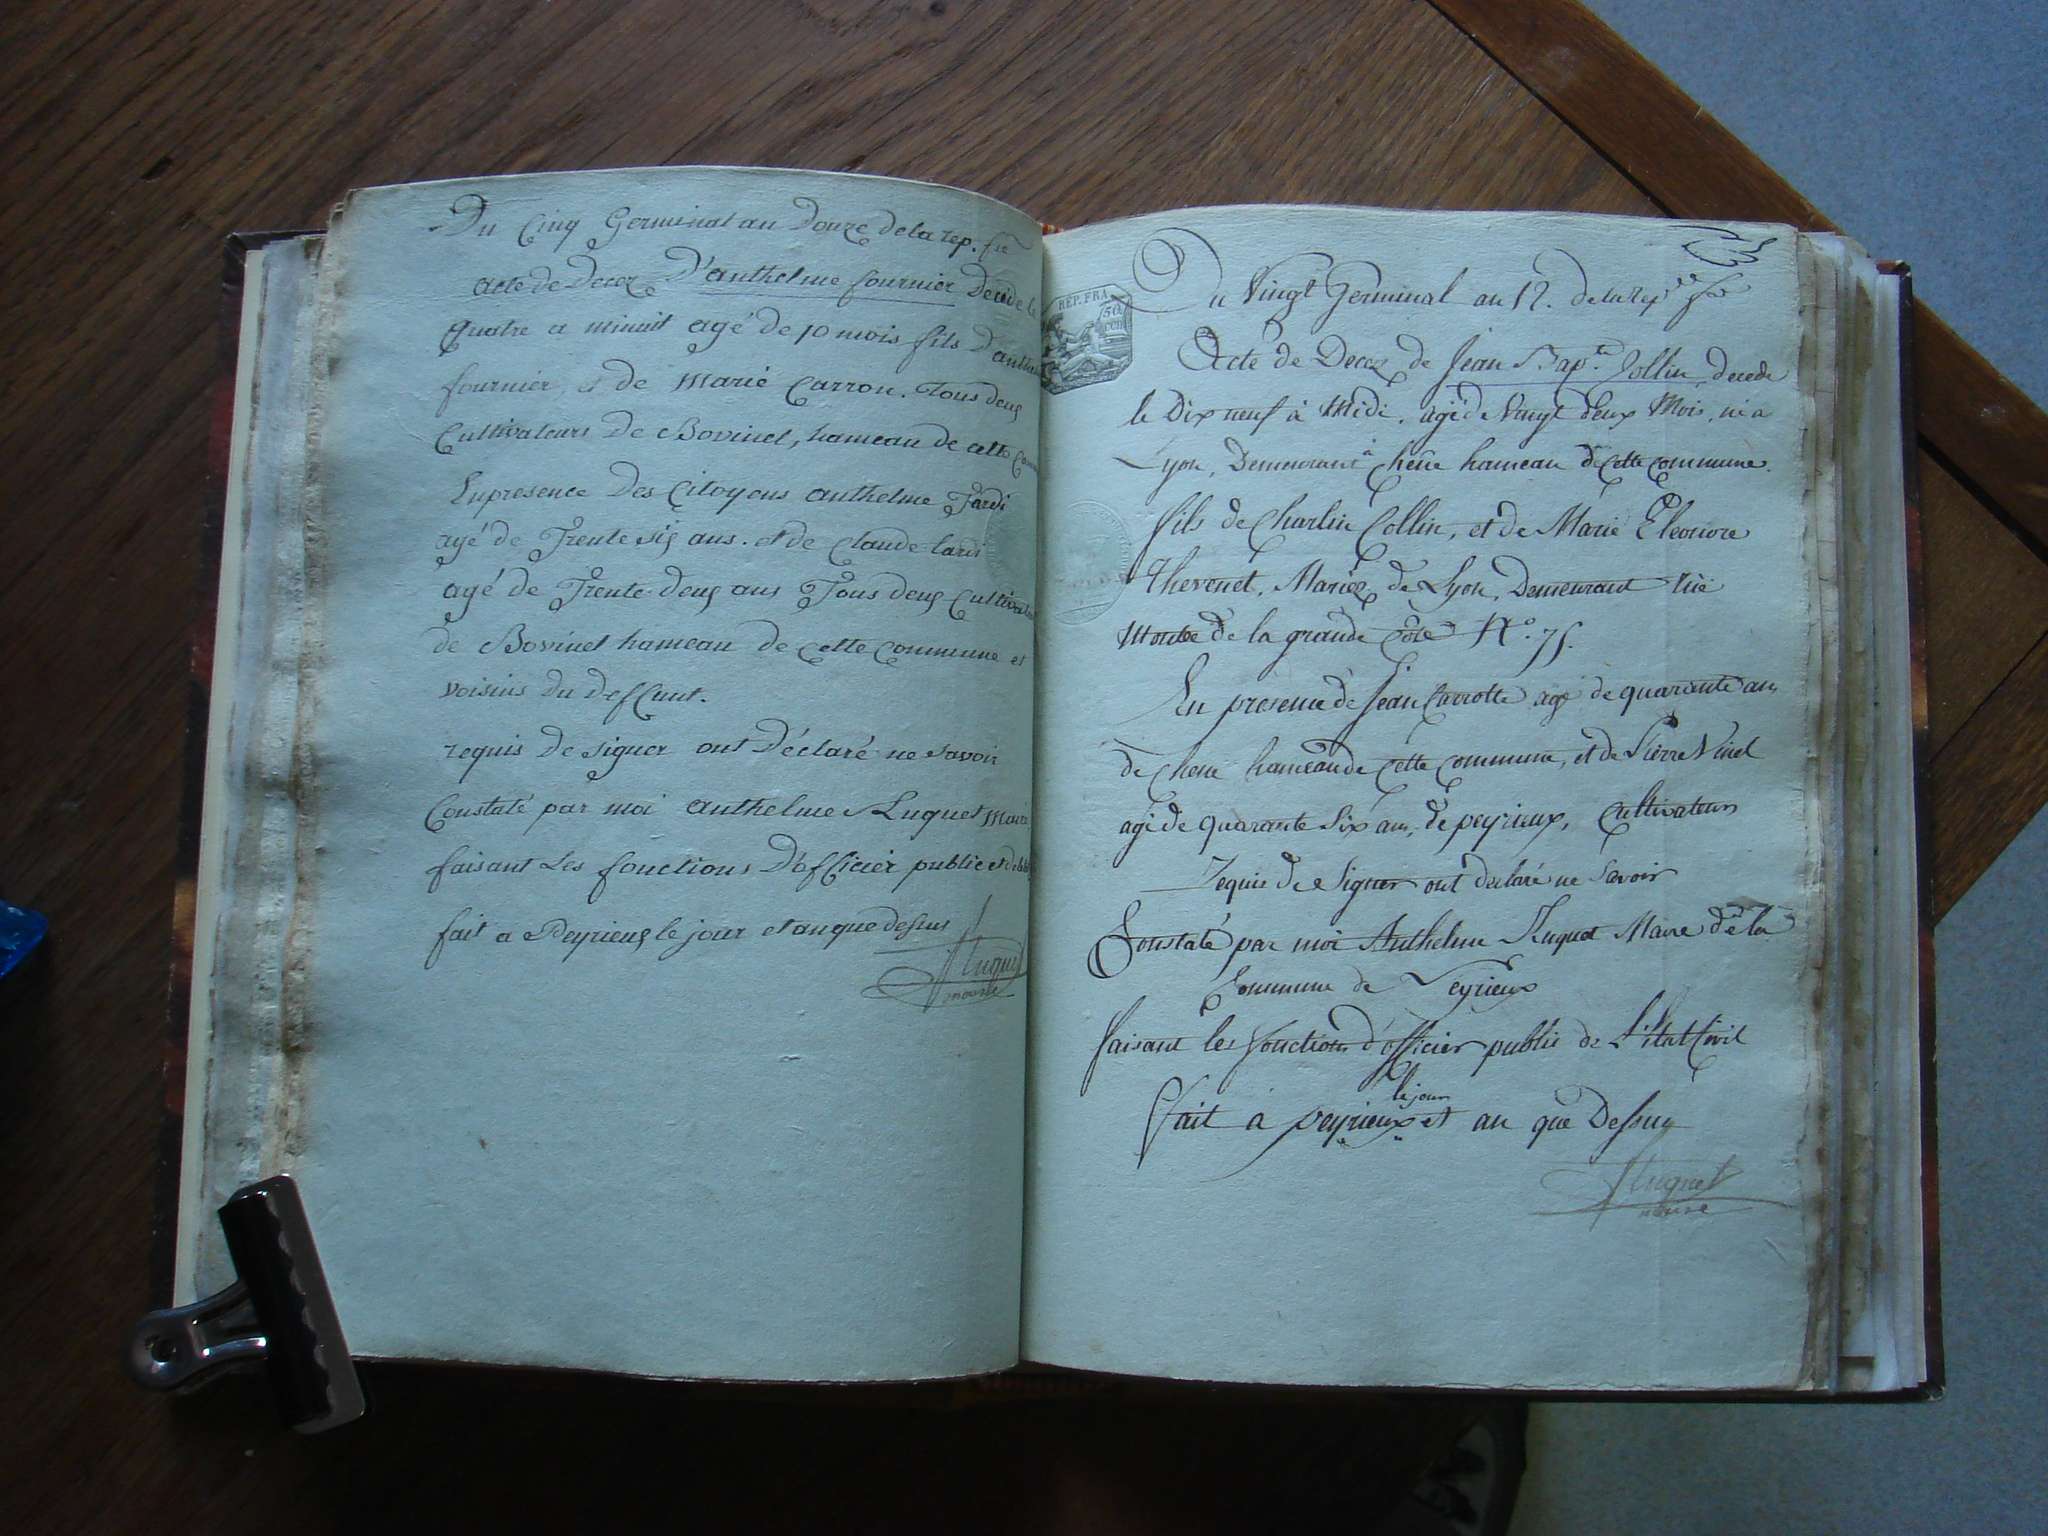 Du Cinq Germinal an Douze de la rep. fse
acte de Decez D'anthelme fournier Decede le
Quatre a minuit agé de 10 mois fils D'anthelme
fournier, et de Marie Carron. Tous deux
Cultivateurs De Bovinel, hameau de cette
En presence Des Citoyens anthelme Tardi
agé de Trente six ans. et de Claude
agé de Trente deux ans Tous deux Cultivateurs
de Bovinel hameau de Cette Commune et
voisins du deffunt.
requis De signer ont Déclaré ne savoir
Constaté par moi anthelme Luquet Maire
faisant Les fonctions D'officier public
fait a Peyrieux le jour et an que dessus
Luquet
maire
REP. FRA.
50
cen
Du Vingt Germinal an 12. de la rep.
Acte de Decez de Jean Bapte. Collin, decede
le Dix neuf à Midi. agé de Vingt deux Mois, né a
Lyon, Demeurant à Chêne hameau de Cette Commune.
fils de Charlin Collin, et de Marie Eleonore
Thevenet, Mariez de Lyon, Demeurant rüe
Montée de la grande Côte N°. 75.
En présence de Jean Carrotte agé de quarante ans
de Chene hameau de Cette Commune, et de Pierre Vinel
agé de quarante Six ans, de peyrieux, Cultivateurs
Requis de Signer ont declaré ne Savoir
Constaté par moi Anthelme Luquet Maire de la
Commune de Peyrieux
faisant les fonctions d'officier public de L'état Civil
le jour
fait à peyrieux et an que Dessus
Luquet
maire